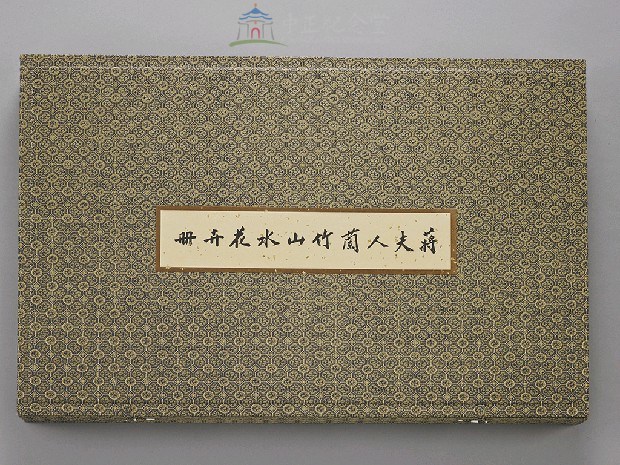 蔣夫人蘭竹山水花卉冊